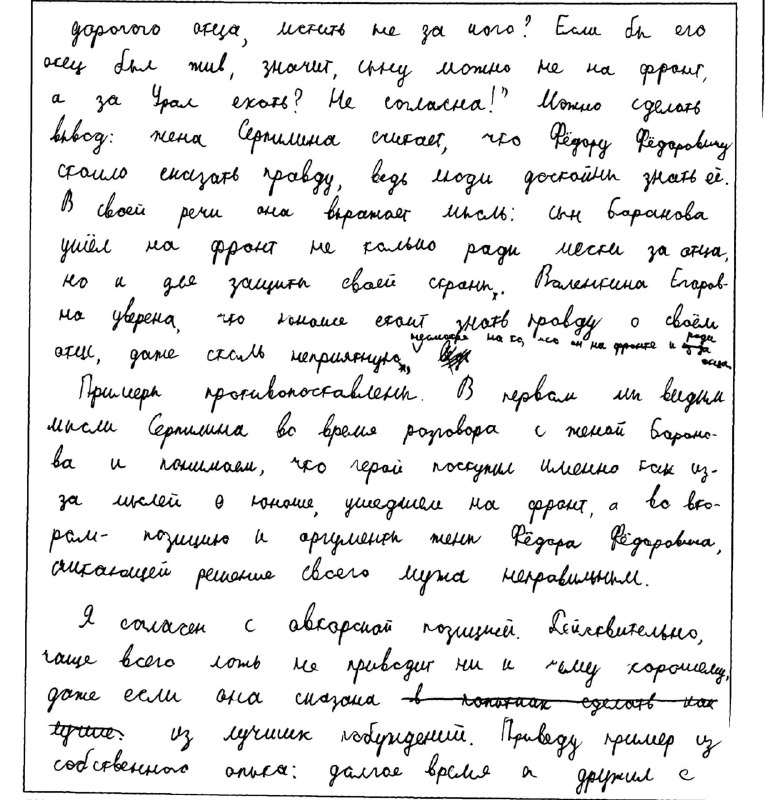 дорогого отца, мстить не за кого? Если бы его
отец был жив, значит, сыну можно не на фронт,
а за Урал ехать? Не согласна!" Можно сделать
вывод: жена Серпилина считает, что Фёдору Фёдоровичу
стоило сказать правду, ведь люди достойны знать её.
В своей речи она выражает мысль: сын Баранова
ушёл на фронт не только ради мести за отца,
но и для защиты своей страны. Валентина Егоров-
на уверена, что юноше стоит знать правду о своём
отце, даже столь неприятную, несмотря на то, что он на фронте и ради отца.
Примеры противопоставлены. В первом мы видим
мысли Серпилина во время разговора с женой Барано-
ва и понимаем, что герой поступил именно так из-
за мыслей о юноше, ушедшем на фронт, а во вто-
ром- позицию и аргументы жены Фёдора Фёдоровича,
считающей решение своего мужа неправильным.
Я согласен с авторской позицией. Действительно,
чаще всего ложь не приводит ни к чему хорошему,
даже если она сказана в попытках сделать как
лучше. из лучших побуждений. Приведу пример из
собственного опыта: долгое время я дружил с